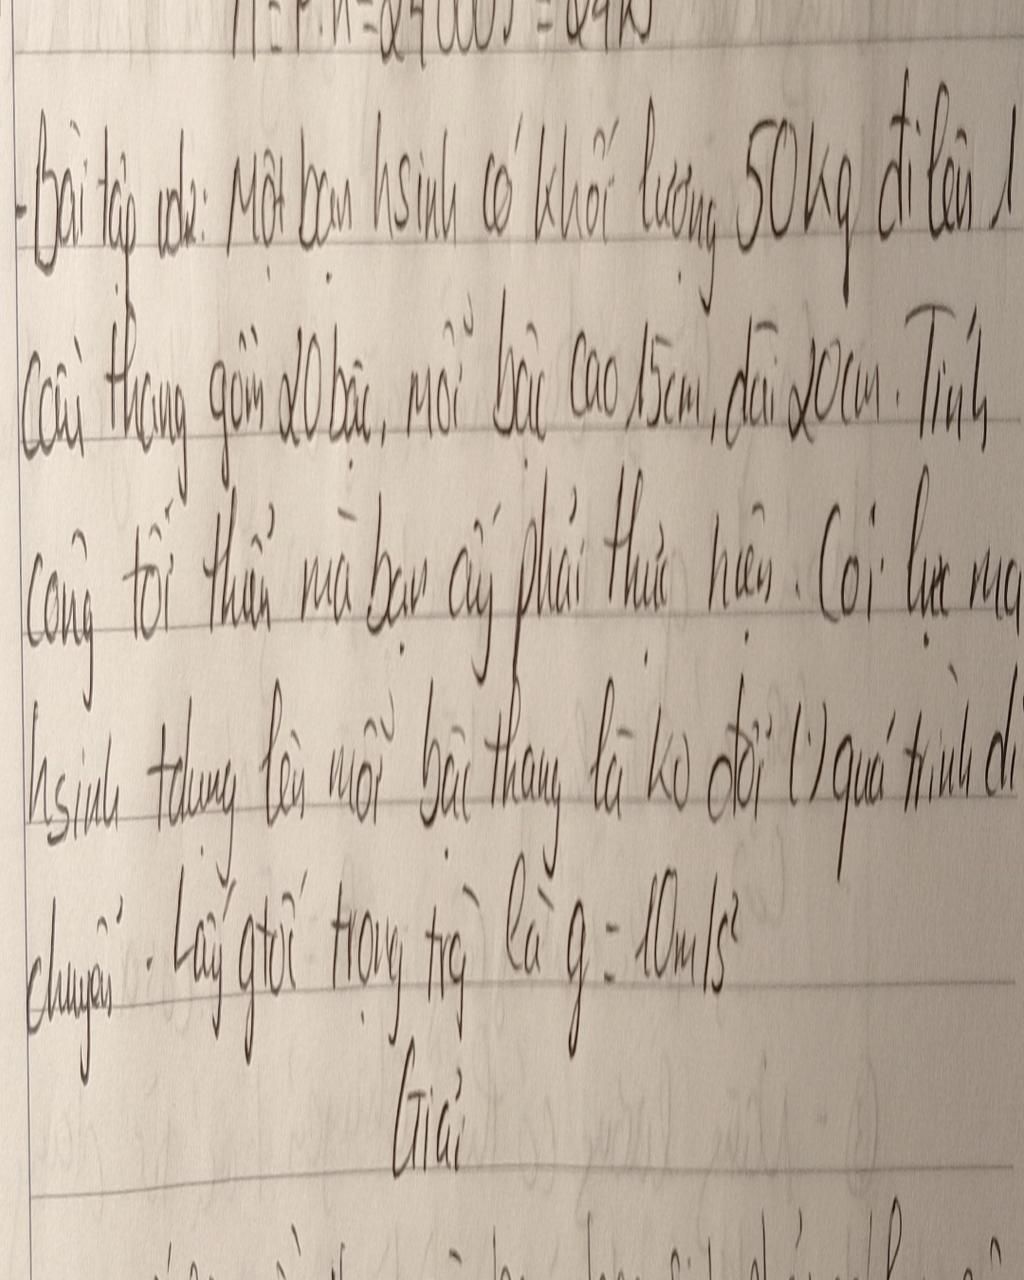 A = P.h = 2400J = 2,4k
- Bài tập vdụ: Một bạn hsinh có khối lượng 50kg đi lên 1
cầu thang gồm 20 bậc, mỗi bậc cao 15cm, dài 20cm. Tính
công tối thiểu mà bạn ấy phải thực hiện. Coi lực mà
hsinh tdụng lên mỗi bậc thang là ko đổi (.) quá trình di
chuyển. Lấy gtốc trọng trg là g = 10m/s²
Giải